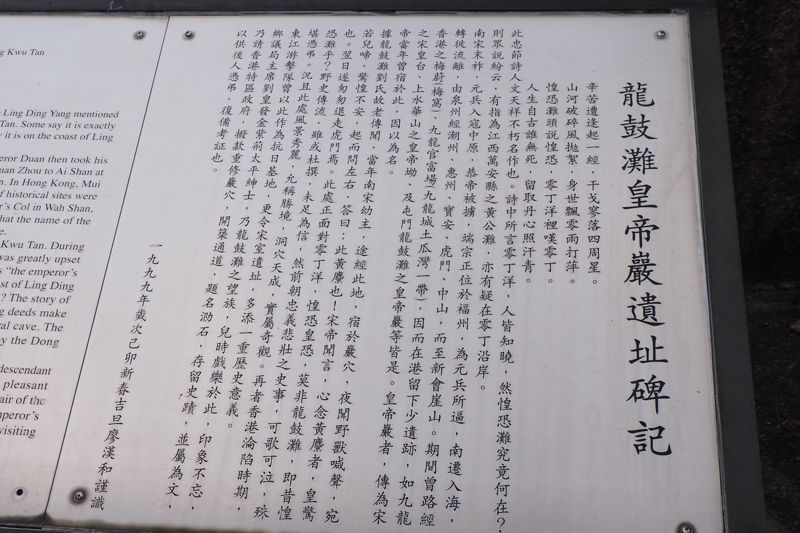 龍鼓灘皇帝巖遺址碑記
辛苦遭逢起一經，干戈寥落四周星。
山河破碎風拋絮，身世飄零雨打萍。
惶恐灘頭說惶恐，零丁洋裡嘆零丁。
人生自古誰無死，留取丹心照汗青。
此忠節詩人文天祥不朽名作也。詩中所言零丁洋，人皆知曉，然惶恐灘究竟何在？
則眾說紛云，有指為江西萬安縣之黃公灘，亦有疑在零丁沿岸。
南宋末祚，元兵入寇中原，恭帝被擄，端宗正位於福州，為元兵所逼，南遷入海，
轉徙流離，由泉州經潮州、惠州、寶安、虎門、中山，而至新會崖山。期間曾路經
香港之梅蔚(梅窩)、九龍官富場(九龍城土瓜灣一帶)，因而在港留下少遺跡，如九龍
之宋皇台、上水華山之皇帝坳、及屯門龍鼓灘之皇帝巖等皆是。皇帝巖者，傳為宋
帝當年曾宿於此，因以為名。
據龍鼓灘劉氏故老傳聞，當年南宋幼主，途經此地，宿於巖穴，夜聞野獸喊聲，宛
若兒啼，驚惶不安，起而問左右，答曰：此黃麖也！宋帝聞言，心念黃麖者，皇驚
也。翌日遂匆匆退走虎門焉。此處正面對零丁洋，惶恐皇恐，莫非龍鼓灘，即昔惶
恐灘乎？野史傳流，雖或杜撰，未足為信，然前朝忠義悲壯之史事，可歌可泣，殊
堪憑弔。況且此處風景秀麗，允稱勝境，洞穴天成，實屬奇觀。再者香港淪陷時期，
東江游擊隊曾以此作為抗日基地，更令宋室遺址，多添一重歷史意義。
鄉議局主席劉皇發金紫荊太平紳士，乃龍鼓灘之望族，兒時戲樂於此，印象不忘，
乃請香港特區政府，撥款重修巖穴，開築通道，題名泐石，存留史蹟，並屬為文，
以供後人憑弔，復備考証也。
一九九九年歲次己卯新春吉旦廖漢和謹識
g Kwu Tan
Ling Ding Yang mentioned
Tan. Some say it is exactly
y it is on the coast of Ling
eror Duan then took his
uan Zhou to Ai Shan at
n. In Hong Kong, Mui
f historical sites were
r's Col in Wah Shan,
hat the name of the
e.
Kwu Tan. During
was greatly upset
s "the emperor's
st of Ling Ding
? The story of
g deeds make
ral cave. The
y the Dong
descendant
pleasant
air of the
mperor's
visiting